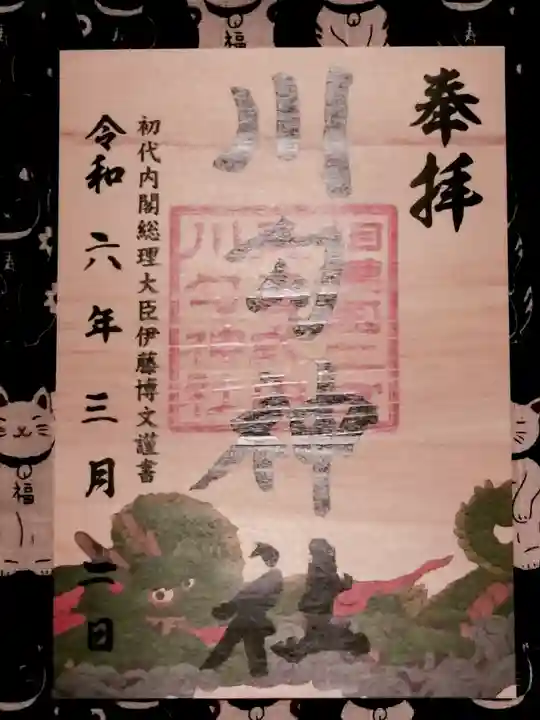 奉拝
川勾神社
初代内閣総理大臣伊藤博文謹書
令和六年三月二日
福
福
福